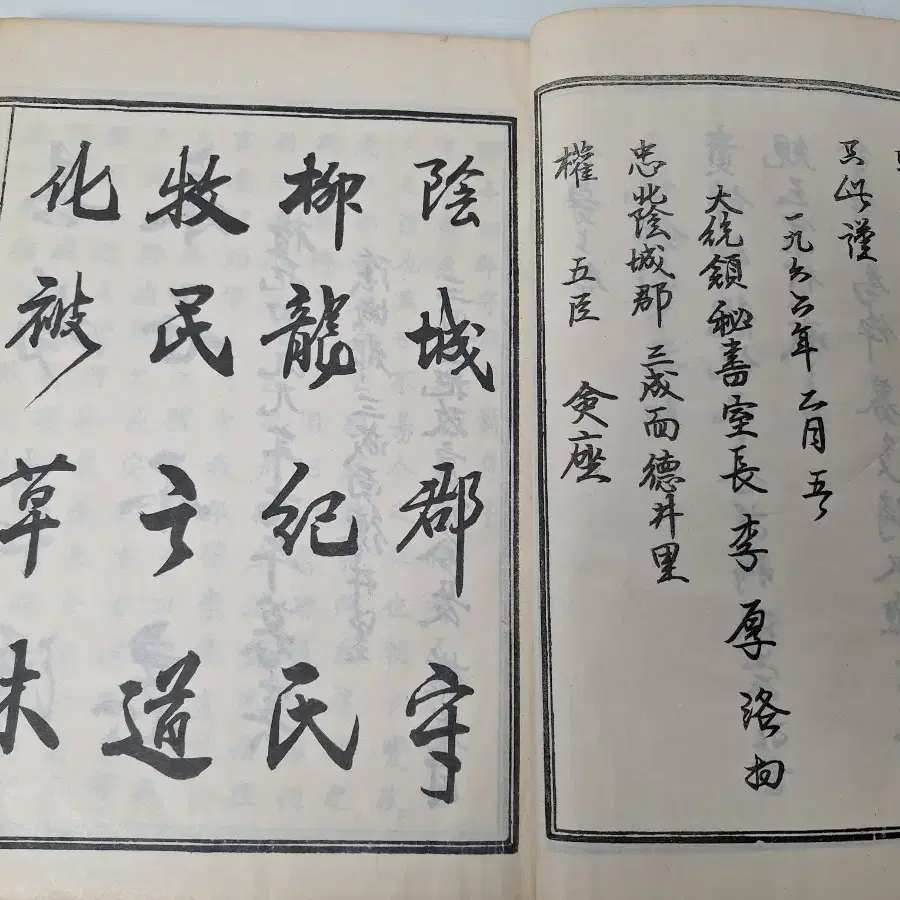 只此謹
一九六六年 二月 五
大統領秘書室長 李厚洛
忠北陰城郡 三成面德井里
權 五臣 僉座
陰城郡守
柳龍紀氏
牧民之道
化被草木